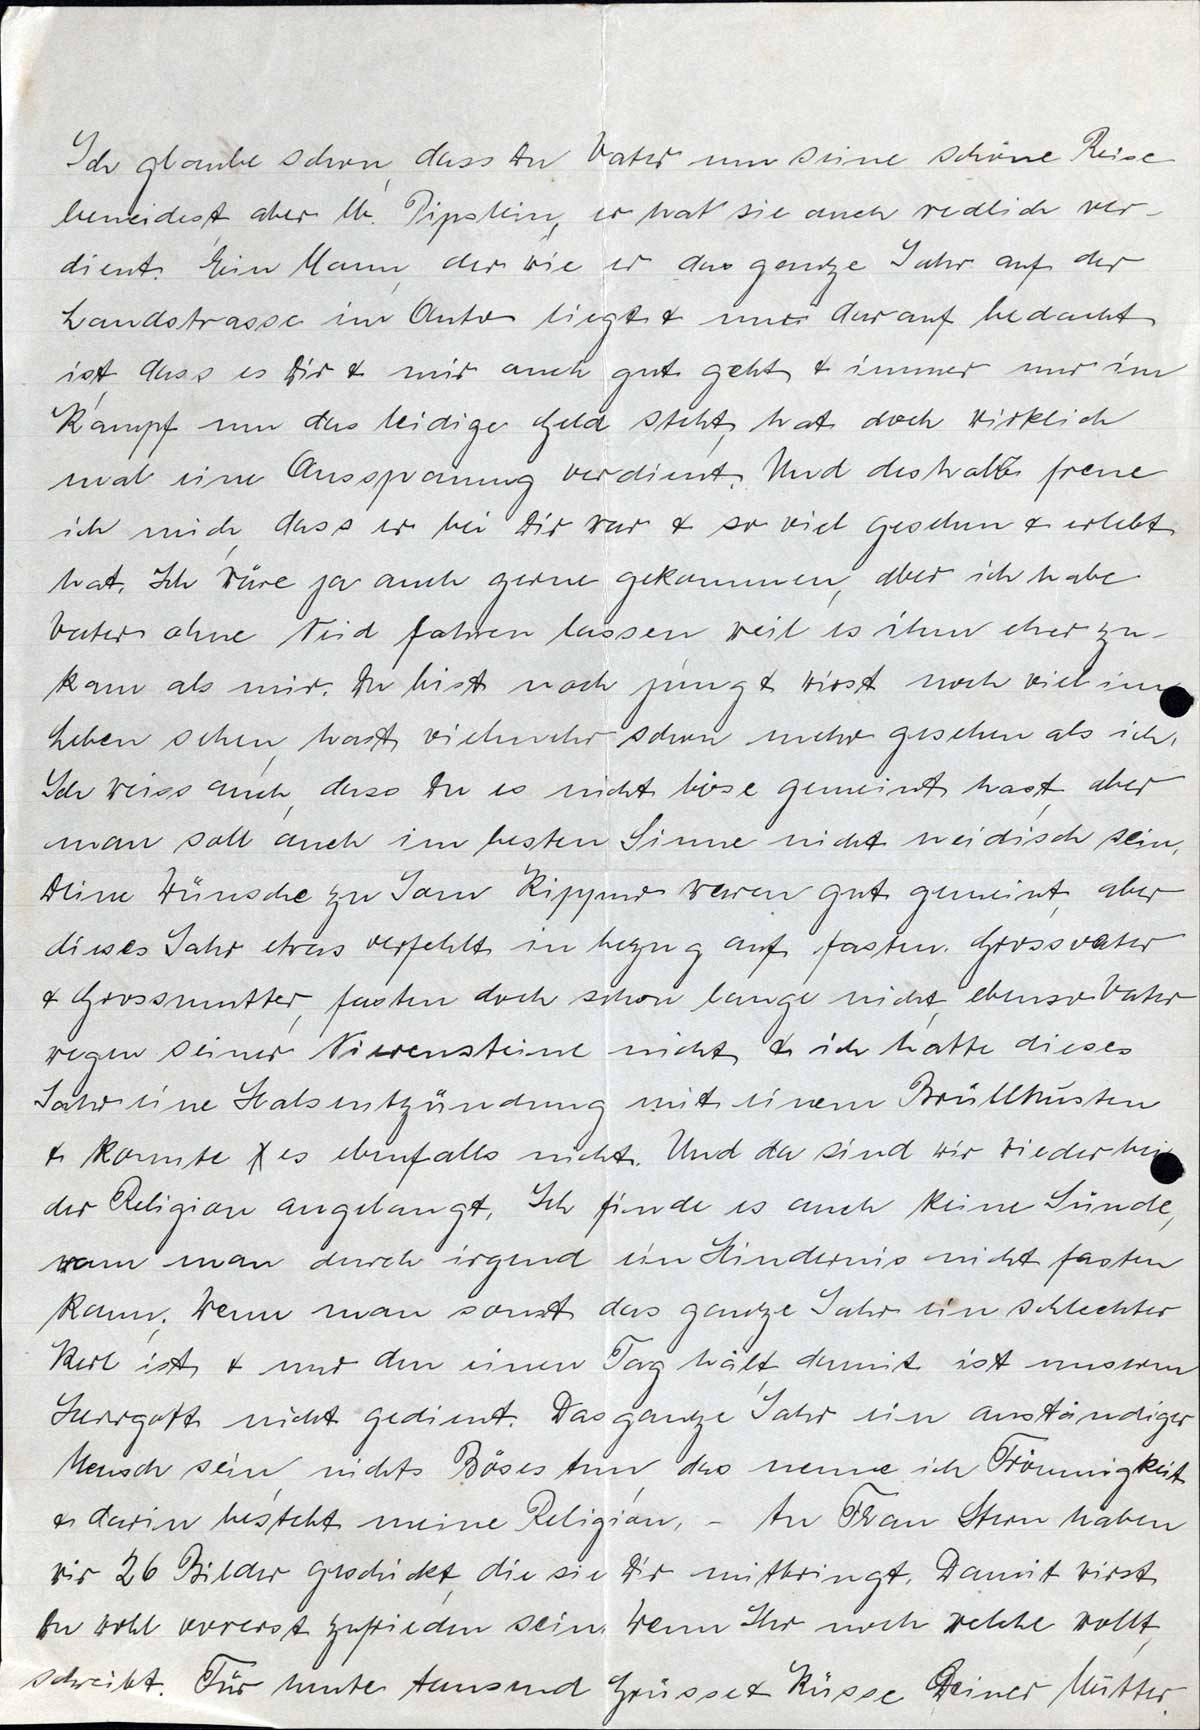 Ich glaube schon, dass Du Vater um seine schöne Reise
beneidest, aber lb. Pipslein, er hat sie auch redlich ver-
dient. Ein Mann, der wie er das ganze Jahr auf der
Landstrasse im Auto liegt & nur darauf bedacht
ist, dass es Dir & mir auch gut geht & immer nur im
Kampf um das leidige Geld steht, hat doch wirklich
mal eine Ausspannung verdient. Und deshalb freue
ich mich, dass er bei Dir war & so viel gesehen & erlebt
hat. Ich wäre ja auch gerne gekommen, aber ich habe
Vater ohne Neid fahren lassen weil es ihm eher zu-
kam als mir. Du bist noch jung & wirst noch viel im
Leben sehen, hast vielmehr schon mehr gesehen als ich.
Ich weiss auch, dass Du es nicht böse gemeint hast, aber
man soll auch im besten Sinne nicht neidisch sein.
Deine Wünsche zu Jom Kippur waren gut gemeint, aber
dieses Jahr etwas verfehlt in bezug auf fasten. Grossvater
& Grossmutter, fasten doch schon lange nicht, ebenso Vater
wegen seiner Nierensteine nicht & ich hatte dieses
Jahr eine Halsentzündung mit einem Brüllhusten
& konnte es ebenfalls nicht. Und da sind wir wieder bei
der Religion angelangt. Ich finde es auch keine Sünde,
wenn man durch irgend ein Hindernis nicht fasten
kann. Wenn man sonst das ganze Jahr ein schlechter
Kerl ist & nur den einen Tag hält, damit ist unserem
Herrgott nicht gedient. Das ganze Jahr ein anständiger
Mensch sein, nichts Böses tun, das nenne ich Frömmigkeit
& darin besteht meine Religion. - An Frau Stern haben
wir 26 Bilder geschickt, die sie Dir mitbringt. Damit wirst
Du wohl vorerst zufrieden sein. Wenn Ihr noch welche wollt,
schreibt. Für heute tausend Grüsse & Küsse Deiner Mutter.